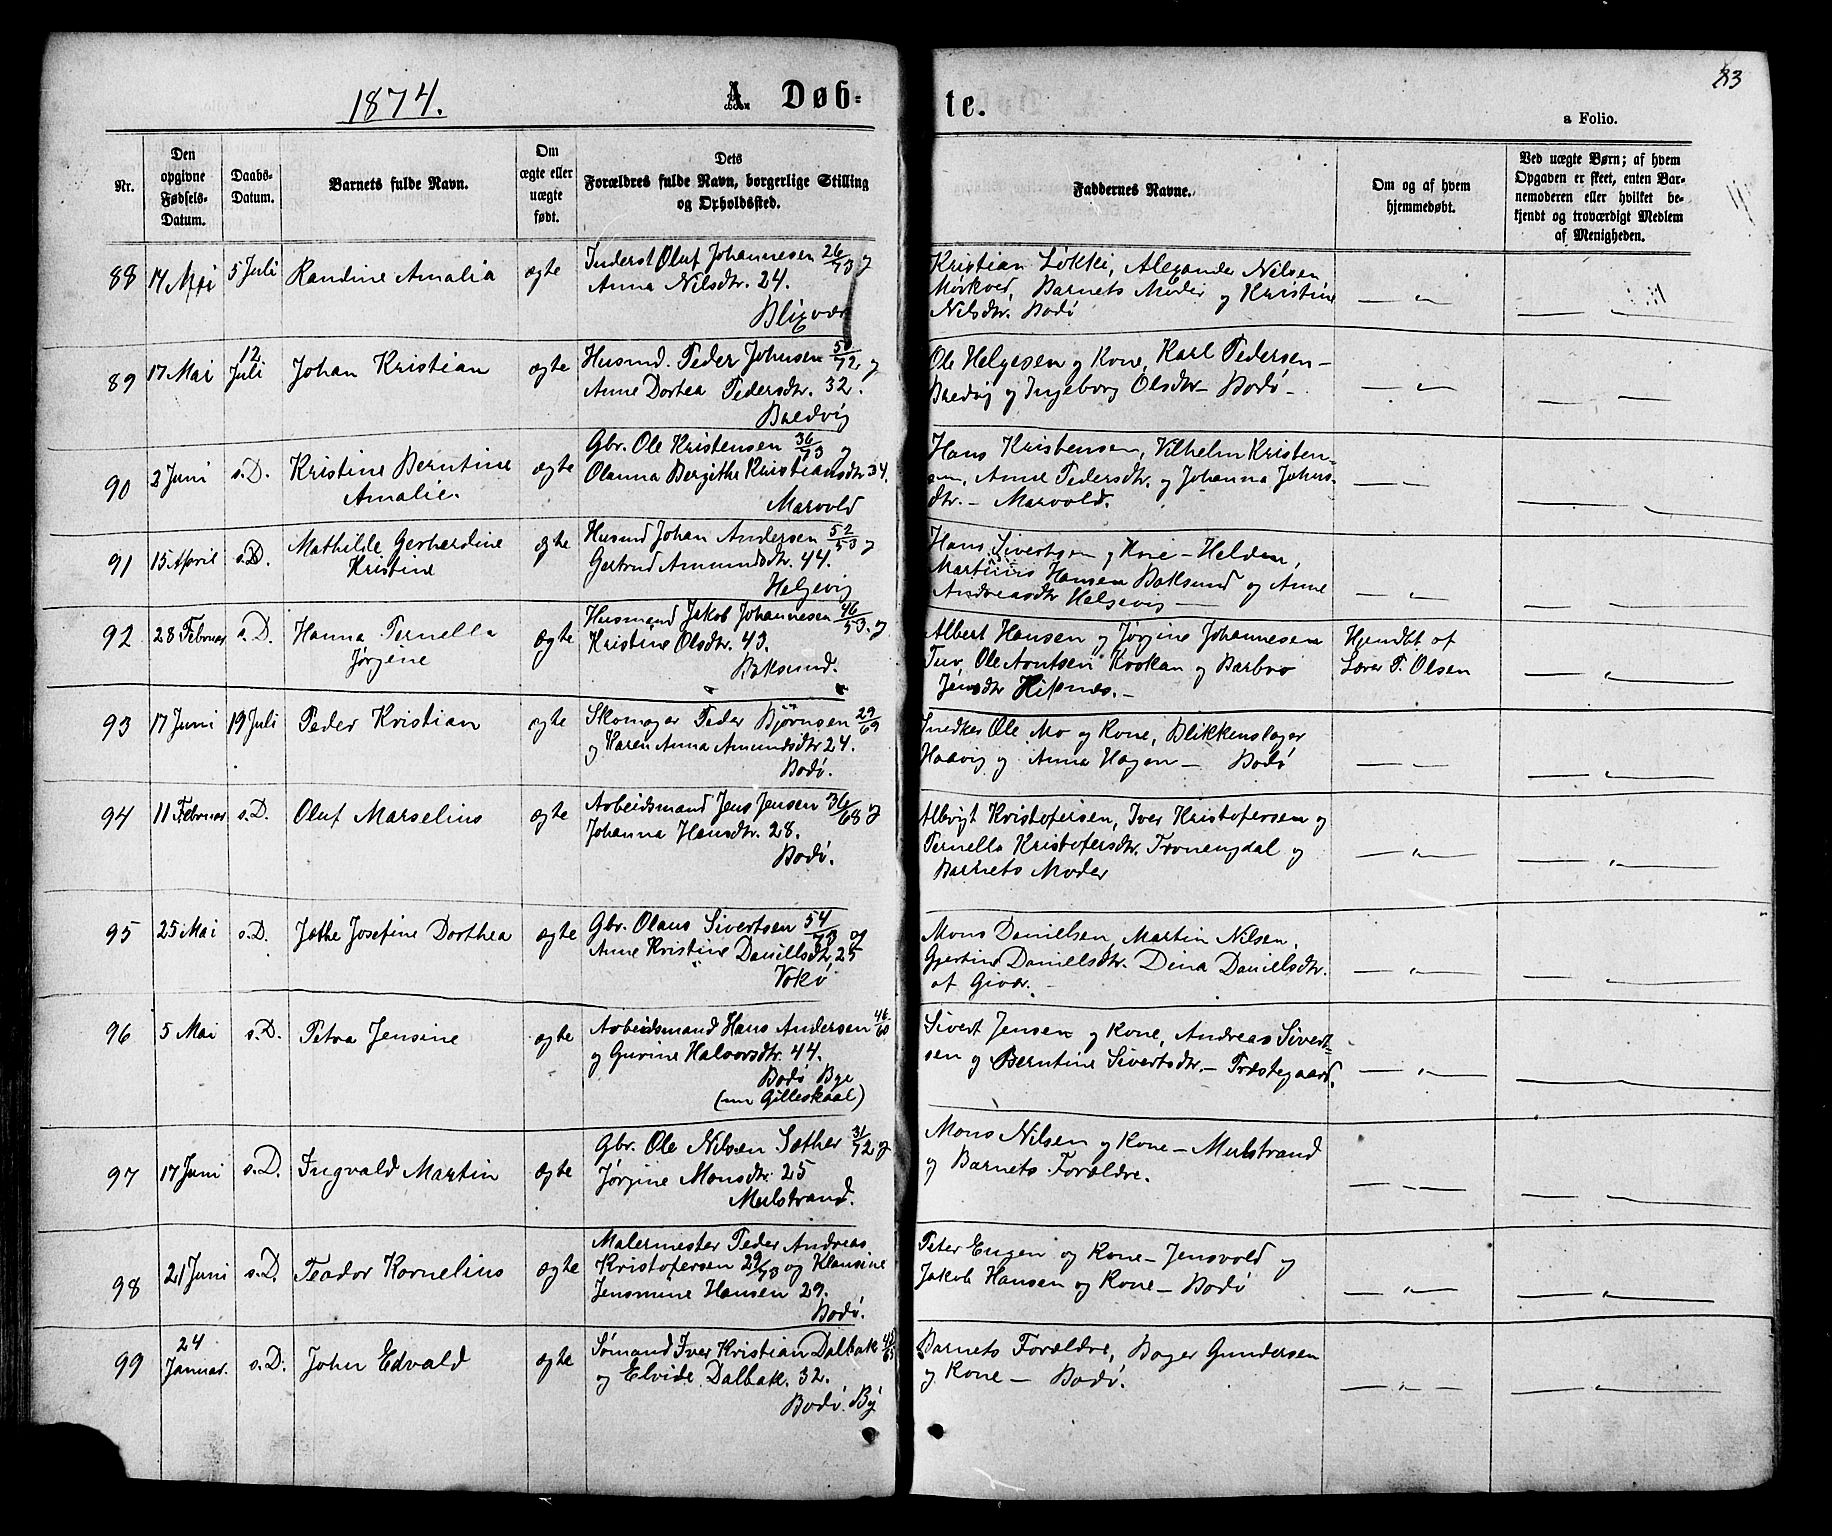 1874.
A. Døb-
te.
83
a Folio.
Nr.
Den
opgivne
Fødsels-
Datum.
Daabs-
Datum.
Barnets fulde Navn.
Om
ægte eller
uægte
født.
Dets
Forældres fulde Navn, borgerlige Stilling
og Opholdssted.
Faddernes Navne.
Om og af hvem
hjemmedøbt.
Ved uægte Børn; af hvem
Opgaven er skeet, enten Bar-
nemoderen eller hvilket be-
kjendt og troværdigt Medlem
af Menigheden.
88 14 Mai 5 Juli Randine Amalia ægte
Inderst Oluf Johannesen 26/73 og
Anna Nilsdtr. 24.
Blixvær
Kristian Løkke, Alexander Nilsen
Mørkved, Barnets Moder og Kristine
Nilsdtr. Bodø
— " — — " —
89 17 Mai 12 Juli Johan Kristian ægte
Husmd. Peder Johnsen 50/72 og
Anne Dorthea Pedersdtr. 32.
Bredvig
Ole Helgesen og Kone, Karl Pedersen -
Bredvig og Ingeborg Olsdtr - Bodø -
— " — — " —
90 2 Juni s.D. Kristine Berntine
Amalie. ægte
Gbr. Ole Kristensen 36/73 og
Olanna Bergithe Kristiansdtr 34.
Marvold
Hans Kristensen, Vilhelm Kristen-
sen, Anne Pedersdtr. og Johanna Johns-
dtr. - Marvold.
— " — — " —
91 15 April s.D. Mathilde Gerhardine
Kristine ægte
Husmd Johan Andersen 52/53 og
Gertrud Amundsdtr. 44.
Helgevig
Hans Sivertsen og Kone - Helden,
Martinus Hansen Baksund og Anne
Andreasdtr Helgevig —
— " — — " —
92 28 Februar s.D. Hanna Pernella
Jørgine ægte
Husmand Jakob Johannesen 46/53. og
Kristine Olsdtr. 43.
Baksund.
Albert Hansen og Jørgine Johannesen
Tuv, Ole Arntsen Krokan og Barbro
Jensdtr Hiknæs. -
Hjemdbt af
Lærer P. Olsen
— " —
93 17 Juni 19 Juli Peder Kristian ægte
Skomager Peder Bjørnsen 29/69
og Karen Anna Amundsdtr 24.
Bodø.
Snedker Ole Mo og Kone, Blikkenslager
Haavig og Anna Hagen - Bodø
— " — — " —
94 11 Februar s.D. Oluf Marselius ægte
Arbeidsmand Jens Jensen 36/68 og
Johanna Hansdtr. 28.
Bodø.
Albrigt Kristofersen, Iver Kristofersen og
Pernella Kristofersdtr. Tronengdal og
Barnets Moder
— " — — " —
95 25 Mai s.D. Jethe Josefine Dorthea ægte
Gbr. Olaus Sivertsen 54/73 og
Anne Kristine Daniilsdtr. 25
Vokø
Mons Danielsen, Martin Nilsen,
Gjertine Danielsdtr. Dina Danielsdtr.
af Givær. -
— " — — " —
96 5 Mai s.D. Petra Jensine ægte
Arbeidsmand Hans Andersen 46/60
og Gurine Halvorsdtr. 44.
Bodø Bye
(nu Gilleskaal)
Sivert Jensen og Kone, Andreas Sivert-
sen og Berntine Sivertsdtr. - Præstegaard.
— " — — " —
97 17 Juni s.D. Ingvald Martin ægte
Gbr. Ole Nilsen Sæther 31/72 og
Jørgine Monsdtr. 25
Mulstrand.
Mons Nilsen og Kone - Mulstrand
og Barnets Forældre.
— " — — " —
98 21 Juni s.D. Teodor Kornelius ægte
Malermester Peder Andreas
Kristofersen 29/73 og Klausine
Jensmine Hansen 29.
Bodø.
Peter Engen og Kone - Jensvold og
Jakob Hansen og Kone - Bodø
— " — — " —
99 24
Januar. s.D. John Edvald ægte
Sømand Iver Kristian Dalbak
og Elvide Dalbak. 32.
Bodø. By
Barnets Forældre, Bager Gundersen
og Kone - Bodø.
— " — — " —